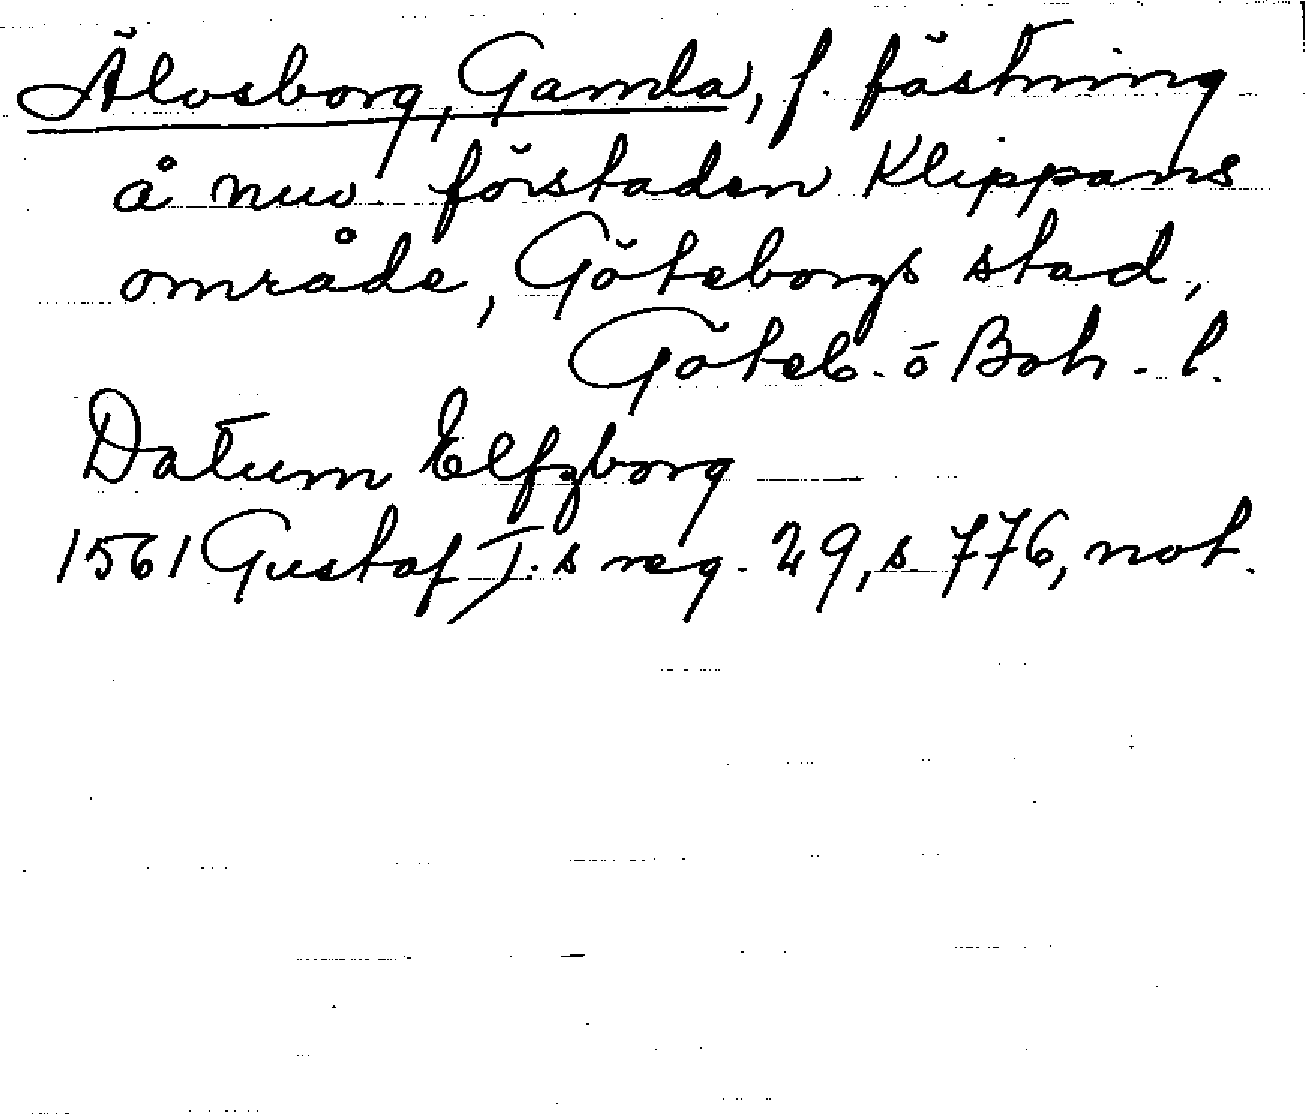 Älvsborg, Gamla, f. fästning
å nuv. förstaden Klippans
område, Göteborgs stad,
Göteb. o Boh. l.
Datum Elfzborg
1561 Gustaf I.s reg. 29, s. 776, not.